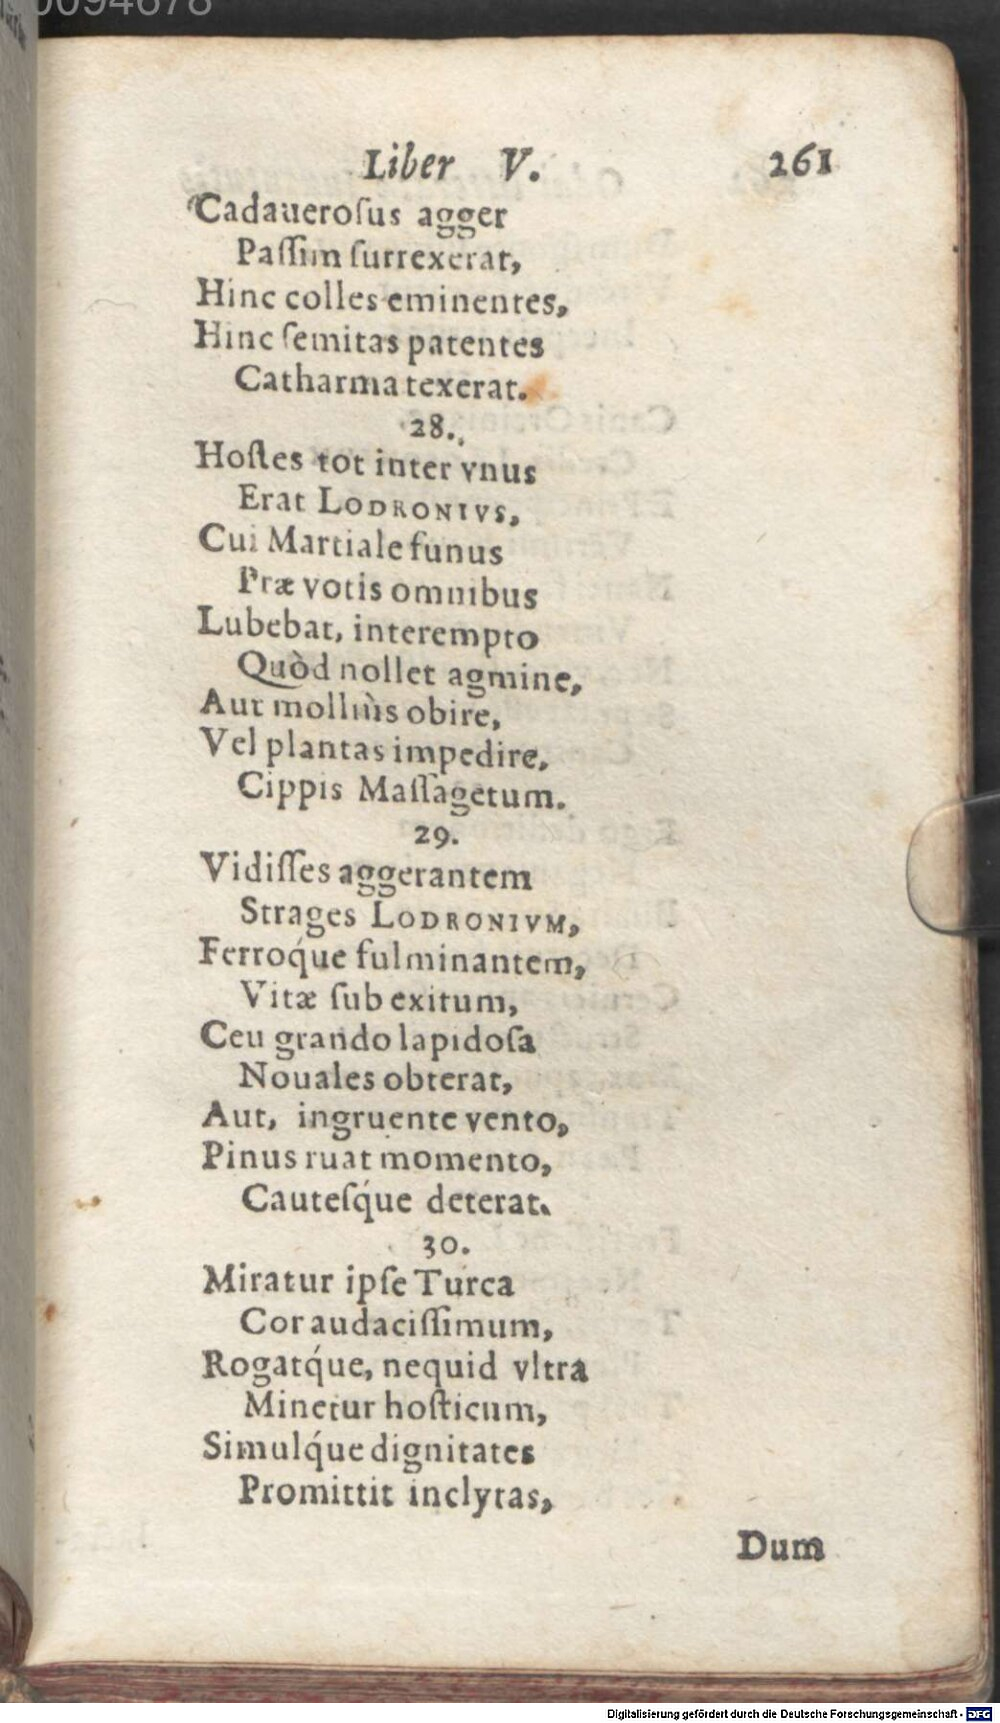 0094678
Liber V. 261
Cadaueroſus agger
Paſſim ſurrexerat,
Hinc colles eminentes,
Hinc ſemitas patentes
Catharma texerat.
28.
Hoſtes tot inter vnus
Erat LODRONIVS,
Cui Martiale funus
Præ votis omnibus
Lubebat, interempto
Quòd nollet agmine,
Aut molliùs obire,
Vel plantas impedire,
Cippis Maſſagetum.
29.
Vidiſſes aggerantem
Strages LODRONIVM,
Ferroq́ue fulminantem,
Vitæ ſub exitum,
Ceu grando lapidoſa
Nouales obterat,
Aut, ingruente vento,
Pinus ruat momento,
Cauteſq́ue deterat.
30.
Miratur ipſe Turca
Cor audaciſſimum,
Rogatq́ue, nequid vltra
Minetur hoſticum,
Simulq́ue dignitates
Promittit inclytas,
Dum
Digitalisierung gefördert durch die Deutsche Forschungsgemeinschaft - DFG